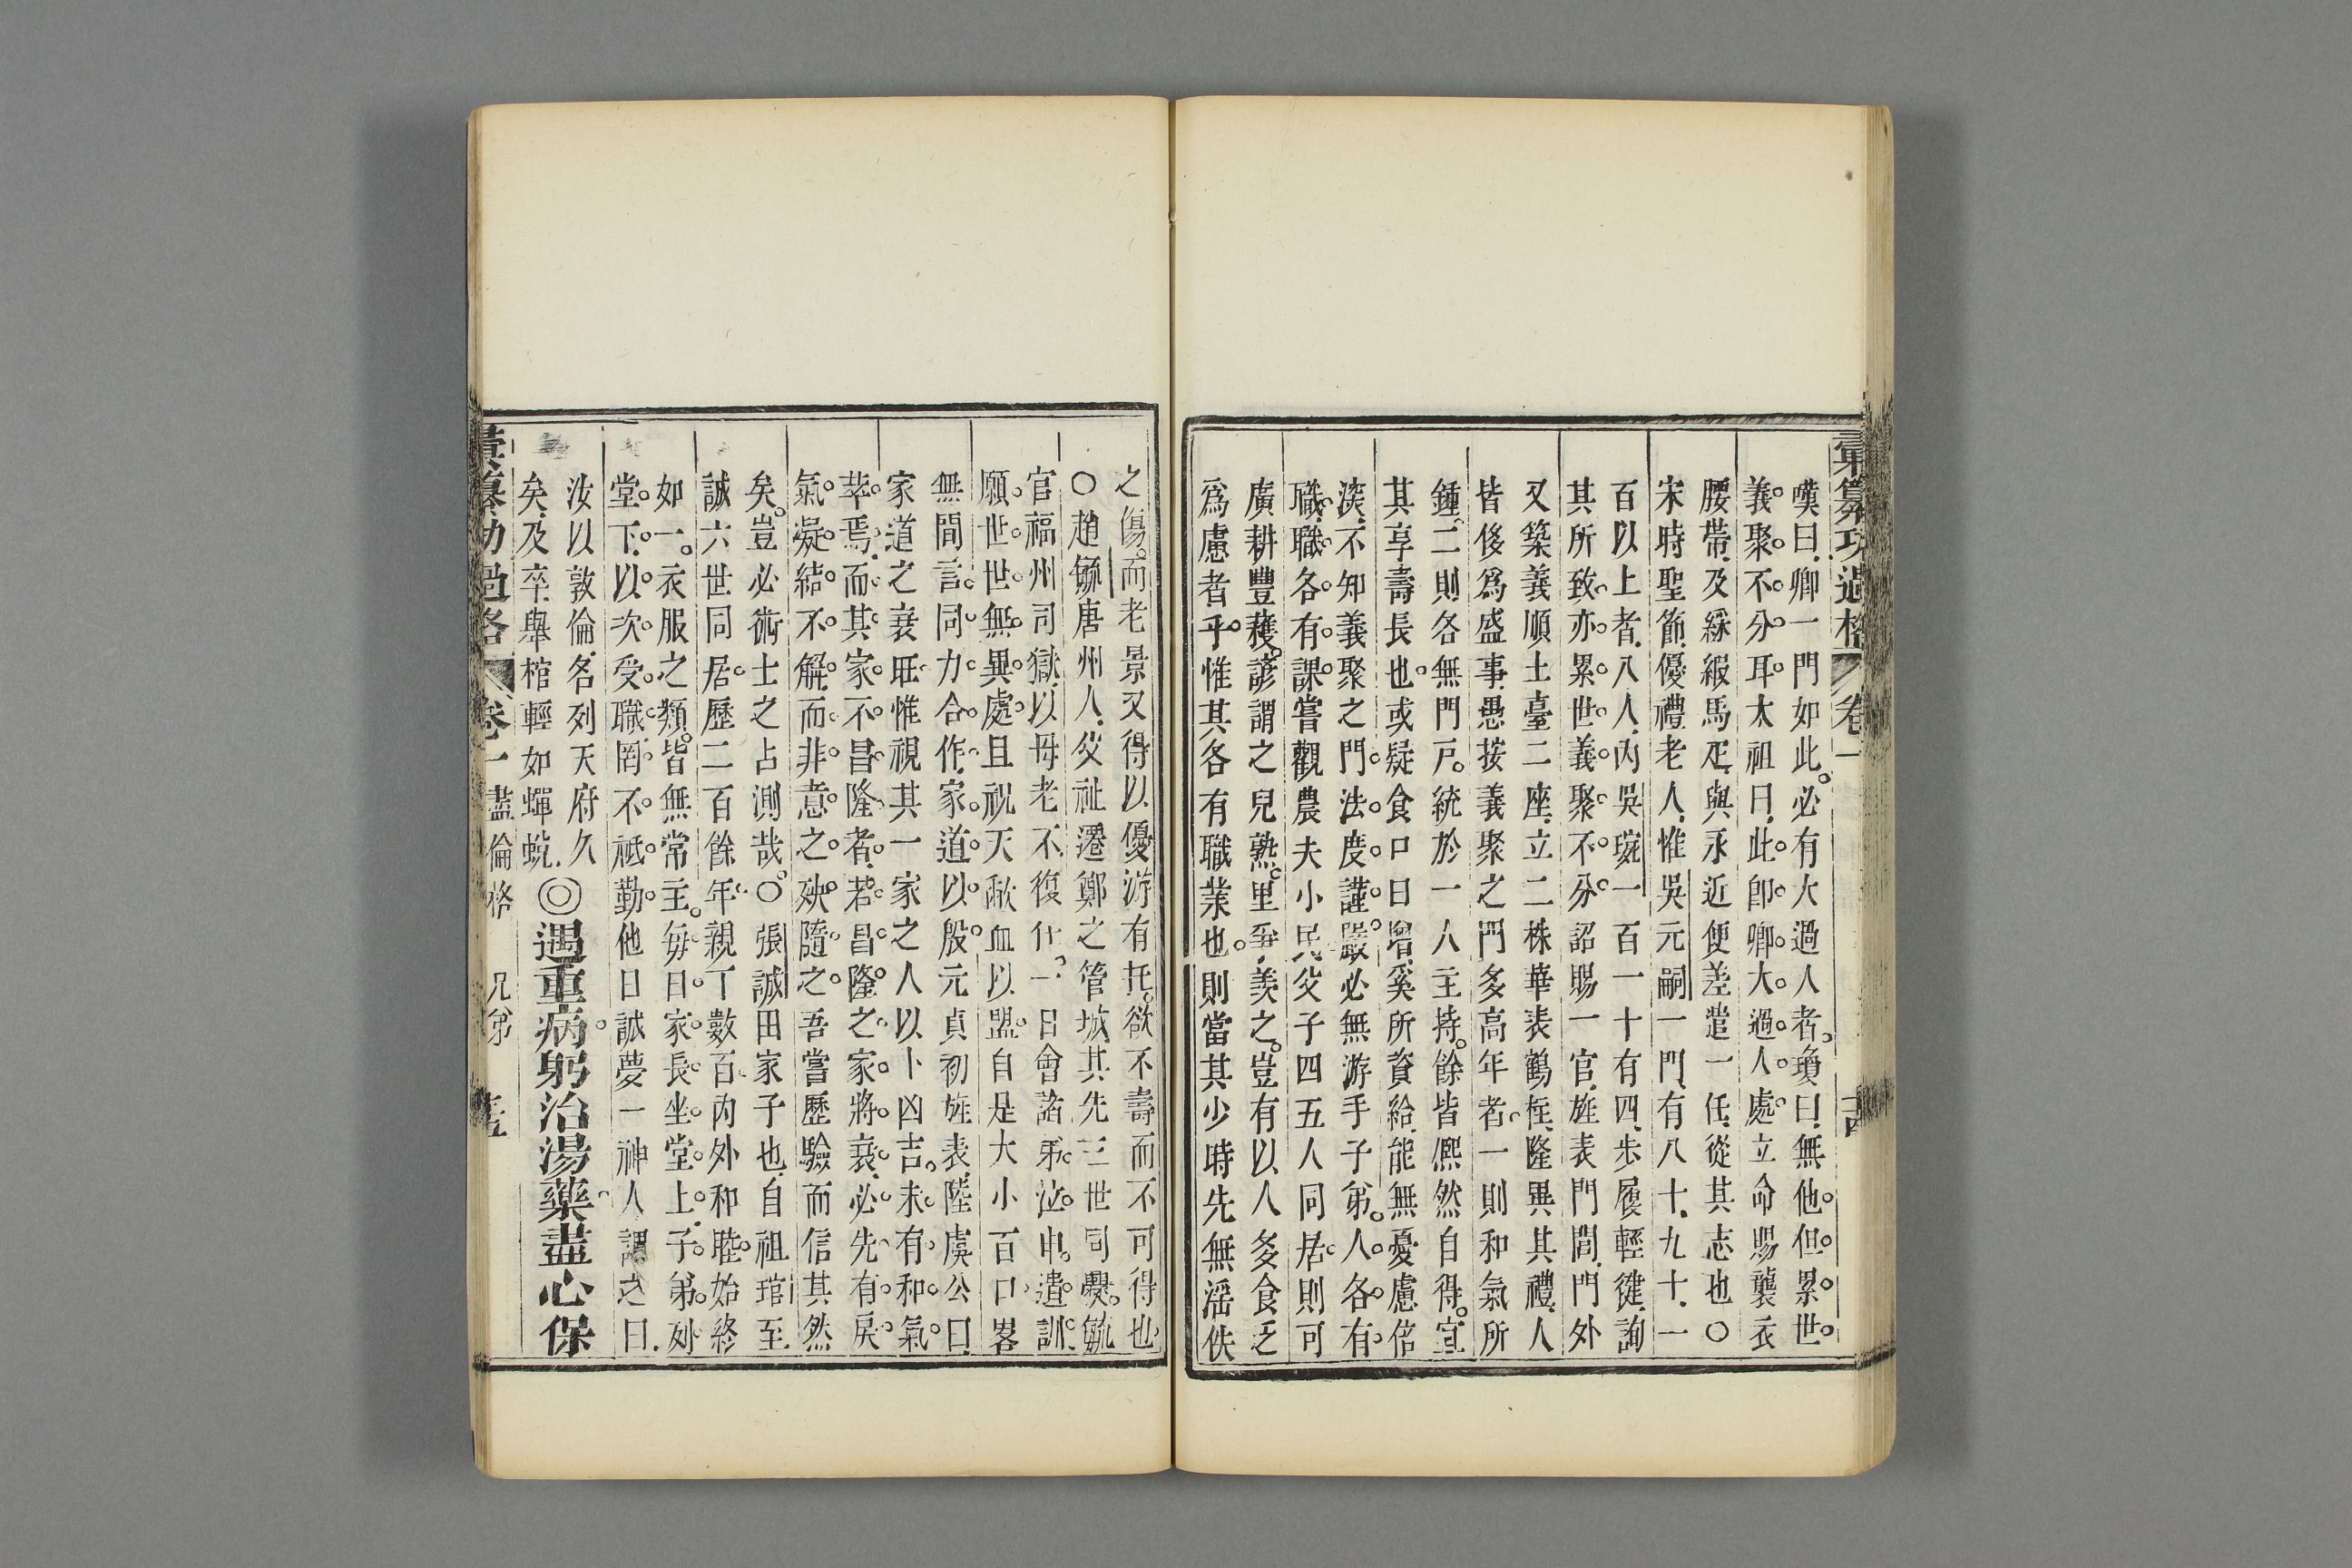 彙纂功過格 卷一
嘆曰卿一門如此必有大過人者瓊曰無他但累世
義聚不分耳太祖曰此卽卿大過人處立命賜襲衣
腰帶及綵緞馬疋與永近便差遣一任從其志也〇
宋時聖節優禮老人惟吳元嗣一門有八十九十一
百以上者八人內吳琬一百一十有四步履輕健詢
其所致亦累世義聚不分詔賜一官旌表門閭門外
又築義順土臺二座立二株華表鶴柱隆異其禮人
皆侈爲盛事愚按義聚之門多高年者一則和氣所
鍾二則各無門戸統於一人主持餘皆熈然自得宜
其享壽長也或疑食口日增奚所資給能無憂慮偣
淡不知義聚之門法度謹嚴必無游手子弟人各有
職職各有課嘗觀農夫小民父子四五人同居則可
廣耕豐穫諺謂之兒熟里爭羨之豈有以人多食乏
爲慮者乎惟其各有職業也則當其少時先無滛佚
之傷而老景又得以優游有托欲不壽而不可得也
〇趙毓唐州人父祉遷鄭之管城其先三世同爨毓
官福州司獄以母老不復仕一日會諸弟泣申遺訓
願世世無異處且祝天歃血以盟自是大小百口畧
無間言同力合作家道以殷元貞初旌表陸虞公曰
家道之衰旺惟視其一家之人以卜凶吉未有和氣
萃焉而其家不昌隆者若昌隆之家將衰必先有戾
氣凝結不解而非意之殃隨之吾嘗歷驗而信其然
矣豈必術士之占測哉〇張誠田家子也自祖琯至
誠六世同居歷二百餘年親丁數百內外和睦始終
如一衣服之類皆無常主每日家長坐堂上子弟列
堂下以次受職罔不祗勤他日誠夢一神人謂之曰
汝以敦倫名列天府久
矣及卒舉棺輕如蟬蛻
◎遇重病躬治湯藥盡心保
彙纂功過格 卷一 盡倫格 兄弟